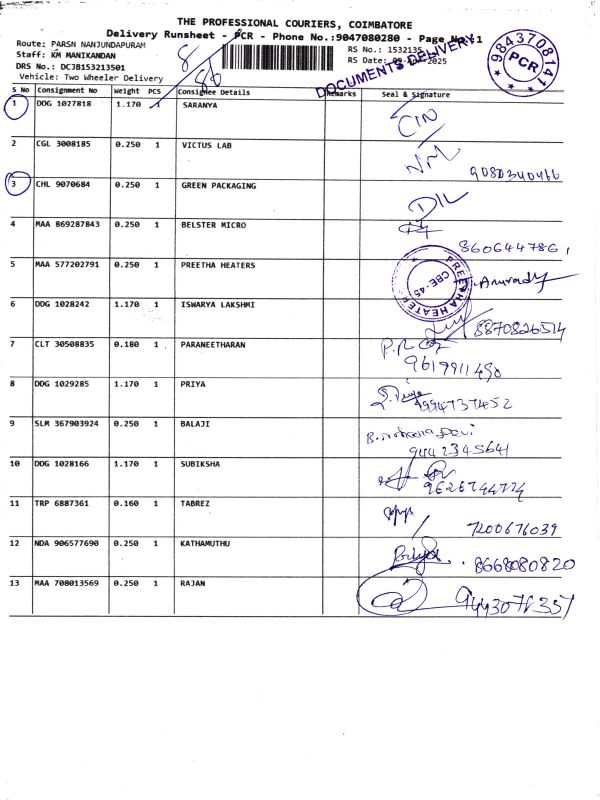 THE PROFESSIONAL COURIERS, COIMBATORE
Delivery Runsheet - PCR - Phone No.:9047080280 - Page No:1
Route: PARSN NANJUNDAPURAM
Staff: KM MANIKANDAN
DRS No.: DCJB153213501
Vehicle: Two Wheeler Delivery
RS No.: 1532135
RS Date: 2025
DOCUMENTS DELIVERY
9843708141
PCR
S No Consignment No Weight PCS Consignee Details Remarks Seal & Signature
1 DDG 1027818 1.170 1 SARANYA
2 CGL 3008185 0.250 1 VICTUS LAB
9080340466
3 CHL 9070684 0.250 1 GREEN PACKAGING
4 MAA 869287843 0.250 1 BELSTER MICRO
860644786 1
5 MAA 577202791 0.250 1 PREETHA HEATERS PREETHA HEATER CBE-45
6 DDG 1028242 1.170 1 ISWARYA LAKSHMI
8870826514
7 CLT 30508835 0.180 1 PARANEETHARAN
9619911490
8 DDG 1029285 1.170 1 PRIYA
9994737452
9 SLM 367903924 0.250 1 BALAJI
9442345641
10 DDG 1028166 1.170 1 SUBIKSHA
9626744724
11 TRP 6887361 0.160 1 TABREZ
7200676039
12 NDA 906577690 0.250 1 KATHAMUTHU
8668080820
13 MAA 708013569 0.250 1 RAJAN